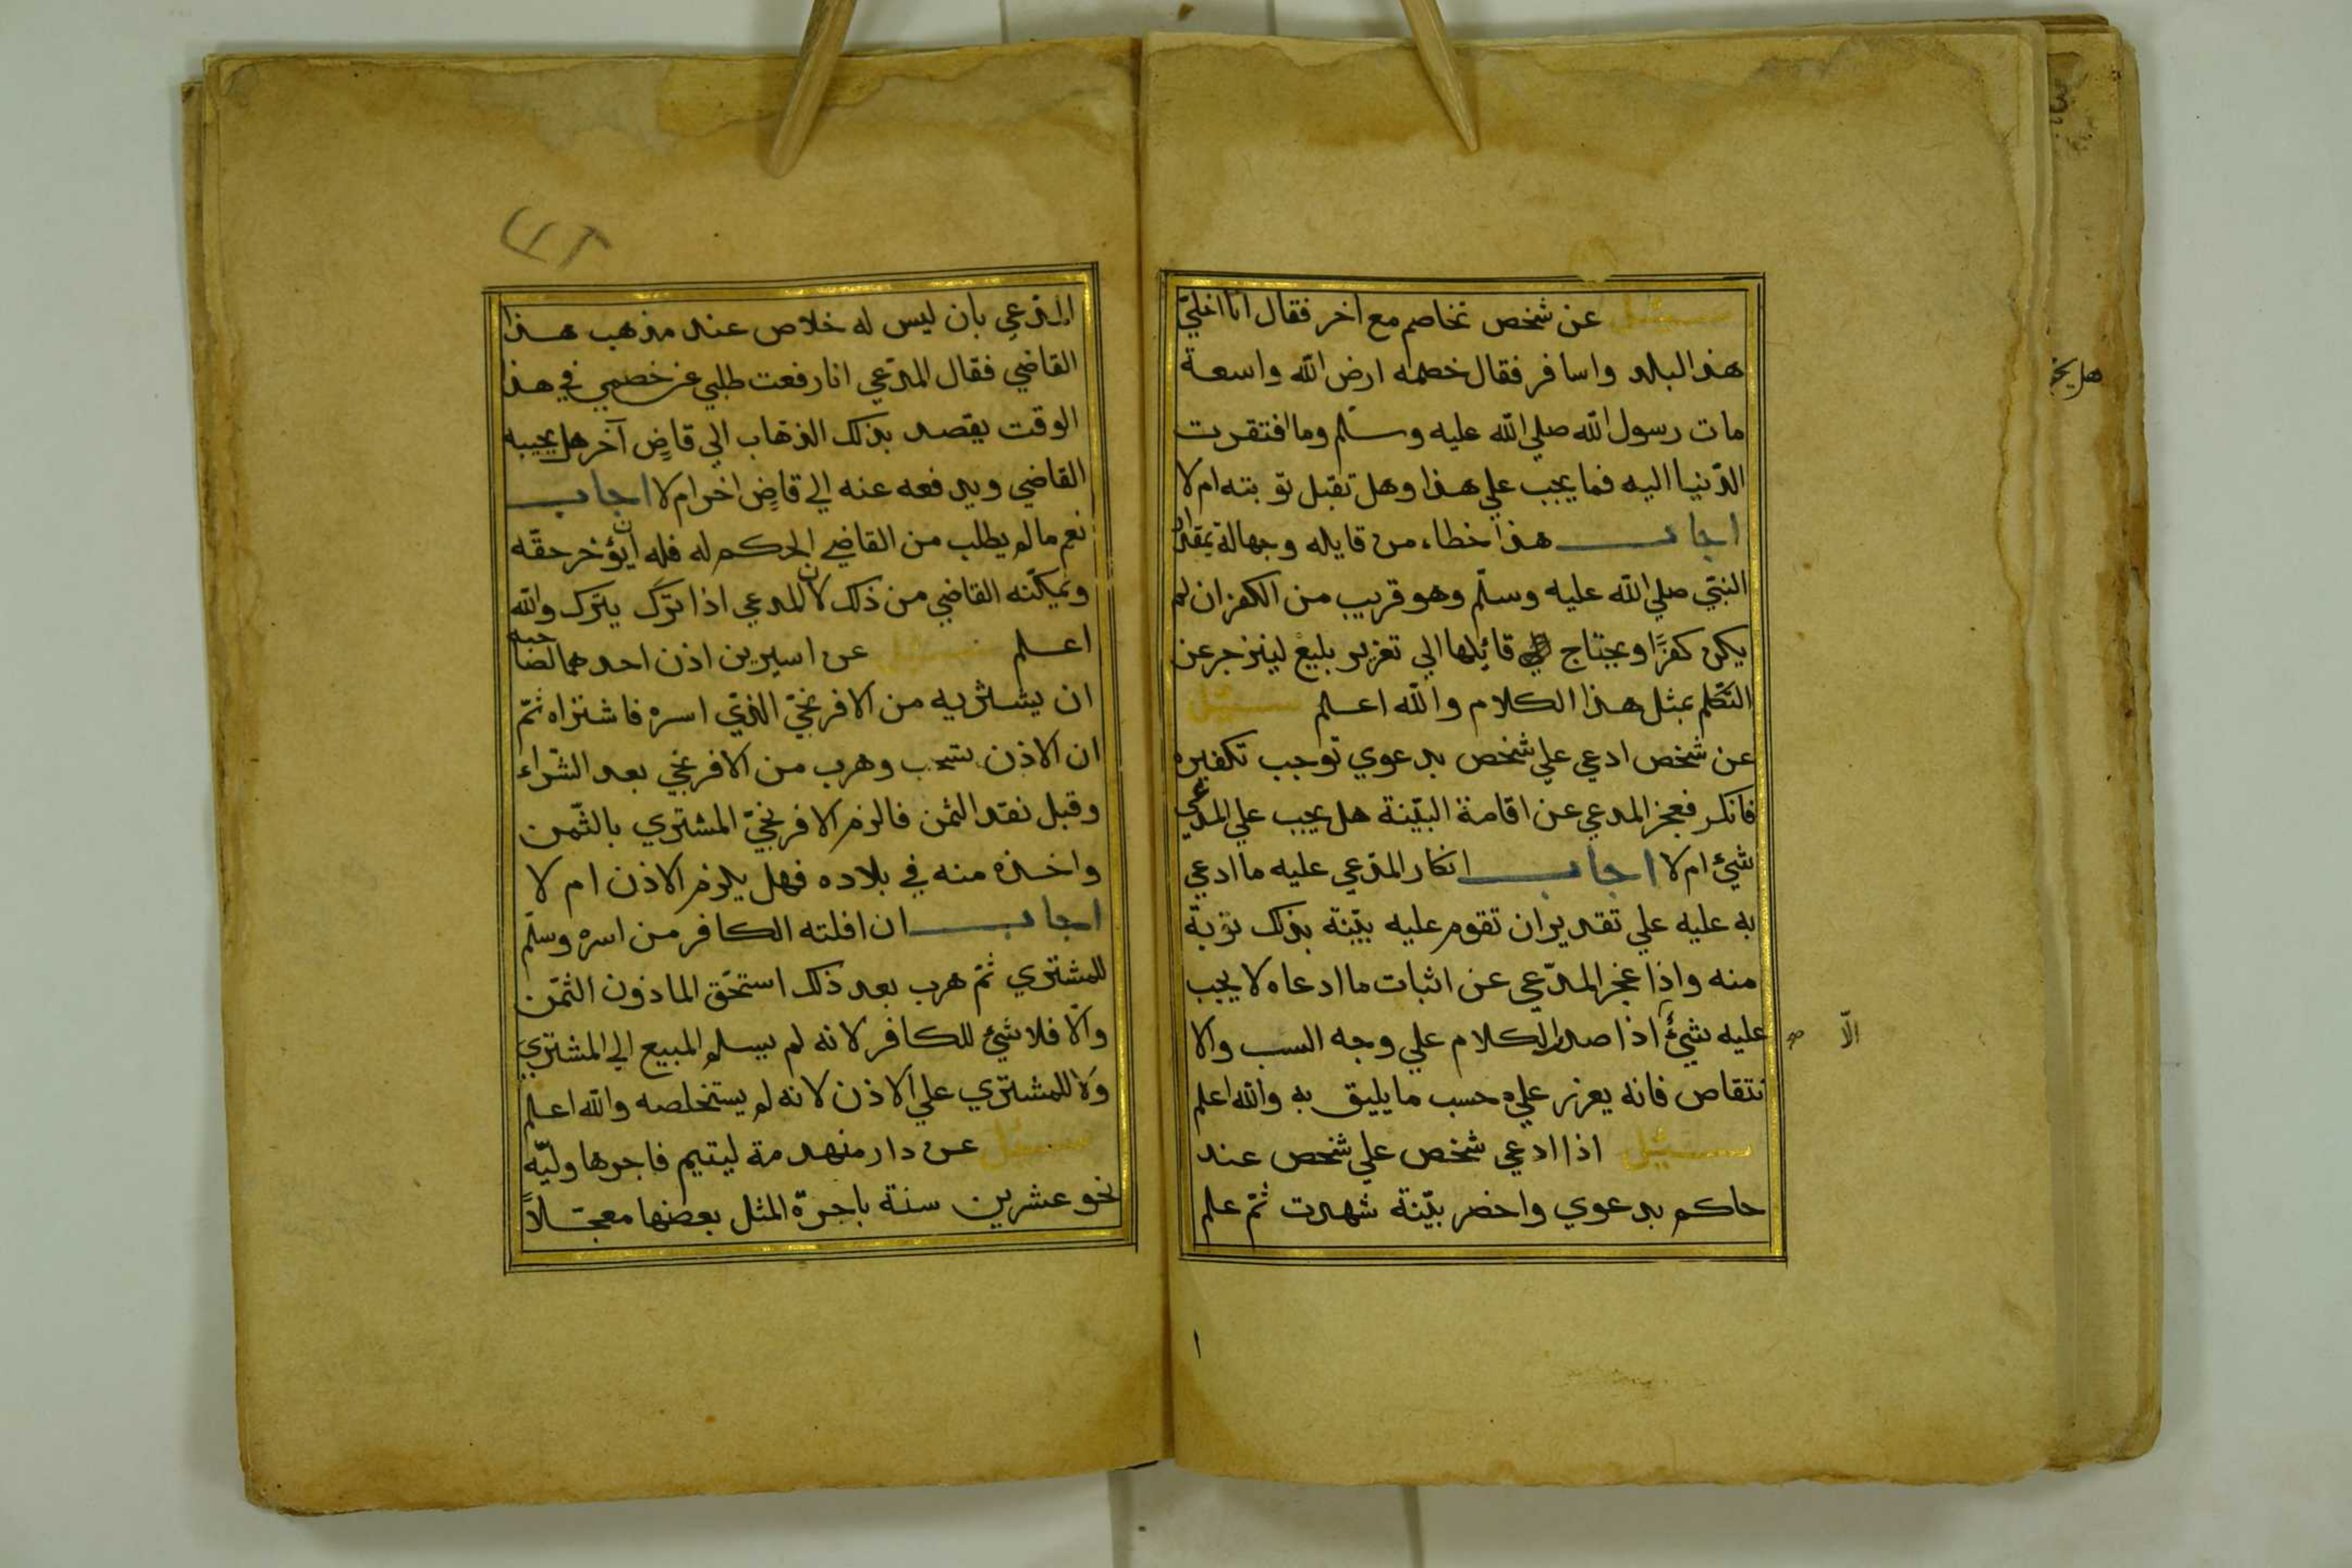 سئل عن شخص تخاصم مع اخر فقال انا اخلي
هذا البلد واسافر فقال خصمه ارض الله واسعة
مات رسول الله صلي الله عليه وسلم وما افتقرت
الدّنيا اليه فما يجب علي هذا وهل تقبل توبته ام لا
اجاب هذا خطاء من قايله وجهالة بمقدار
النبّي صلي الله عليه وسلّم وهو قريب من الكفر ان لم
يكن كفرًا ويحتاج قائلها الي تعزير بليغ لينزجر عن
التكلّم بمثل هذا الكلام والله اعلم سئل
عن شخص ادعي علي شخص بدعوي توجب تكفيره
فانكر فعجز المدعي عن اقامة البيّنة هل يجب علي المدعي
شيئ ام لا اجاب انكار المدّعي عليه ما ادعي
به عليه علي تقدير ان تقوم عليه بيّنة بذلك توبة
منه واذا عجز المدّعي عن اثبات ما ادعاه لا يجب
عليه شيئ اذا صدر الكلام علي وجه السب والا
نتقاص فانه يعزر عليه حسب ما يليق به والله اعلم
سئل اذا ادعي شخص علي شخص عند
حاكم بدعوي واحضر بيّنة شهدت ثمّ علم
الّا صح
هل يجو
٤٢
المدّعي بان ليس له خلاص عند مذهب هذا
القاضي فقال المدّعي انا رفعت طلبي عن خصمي في هذا
الوقت يقصد بذلك الذهاب الي قاضٍ آخر هل يجيبه
القاضي ويدفعه عنه الي قاضٍ اخر ام لا اجاب
نعم ما لم يطلب من القاضي الحكم له فله ان يؤخر حقّه
ويمكّنه القاضي من ذلك لان المدعي اذا ترك يترك والله
اعلم سئل عن اسيرين اذن احدهما لصاحبه
ان يشتريه من الافرنجيّ الذّي اسره فاشتراه ثمّ
ان الاذن تسحب وهرب من الافرنجي بعد الشّراء
وقبل نقد الثمن فالزم الافرنجيّ المشتري بالثّمن
واخذه منه في بلاده فهل يلزم الاذن ام لا
اجاب ان افلته الكافر من اسره وسلّم
للمشتري ثمّ هرب بعد ذلك استحّق الماذون الثمّن
والّا فلا شيئ للكافر لانه لم يسلم المبيع الي المشتري
ولا للمشتري علي الاذن لانه لم يستخلصه والله اعلم
سئل عن دار منهدمة ليتيم فاجرها وليّه
نحو عشرين سنة باجرّة المثل بعضها معجّلاً